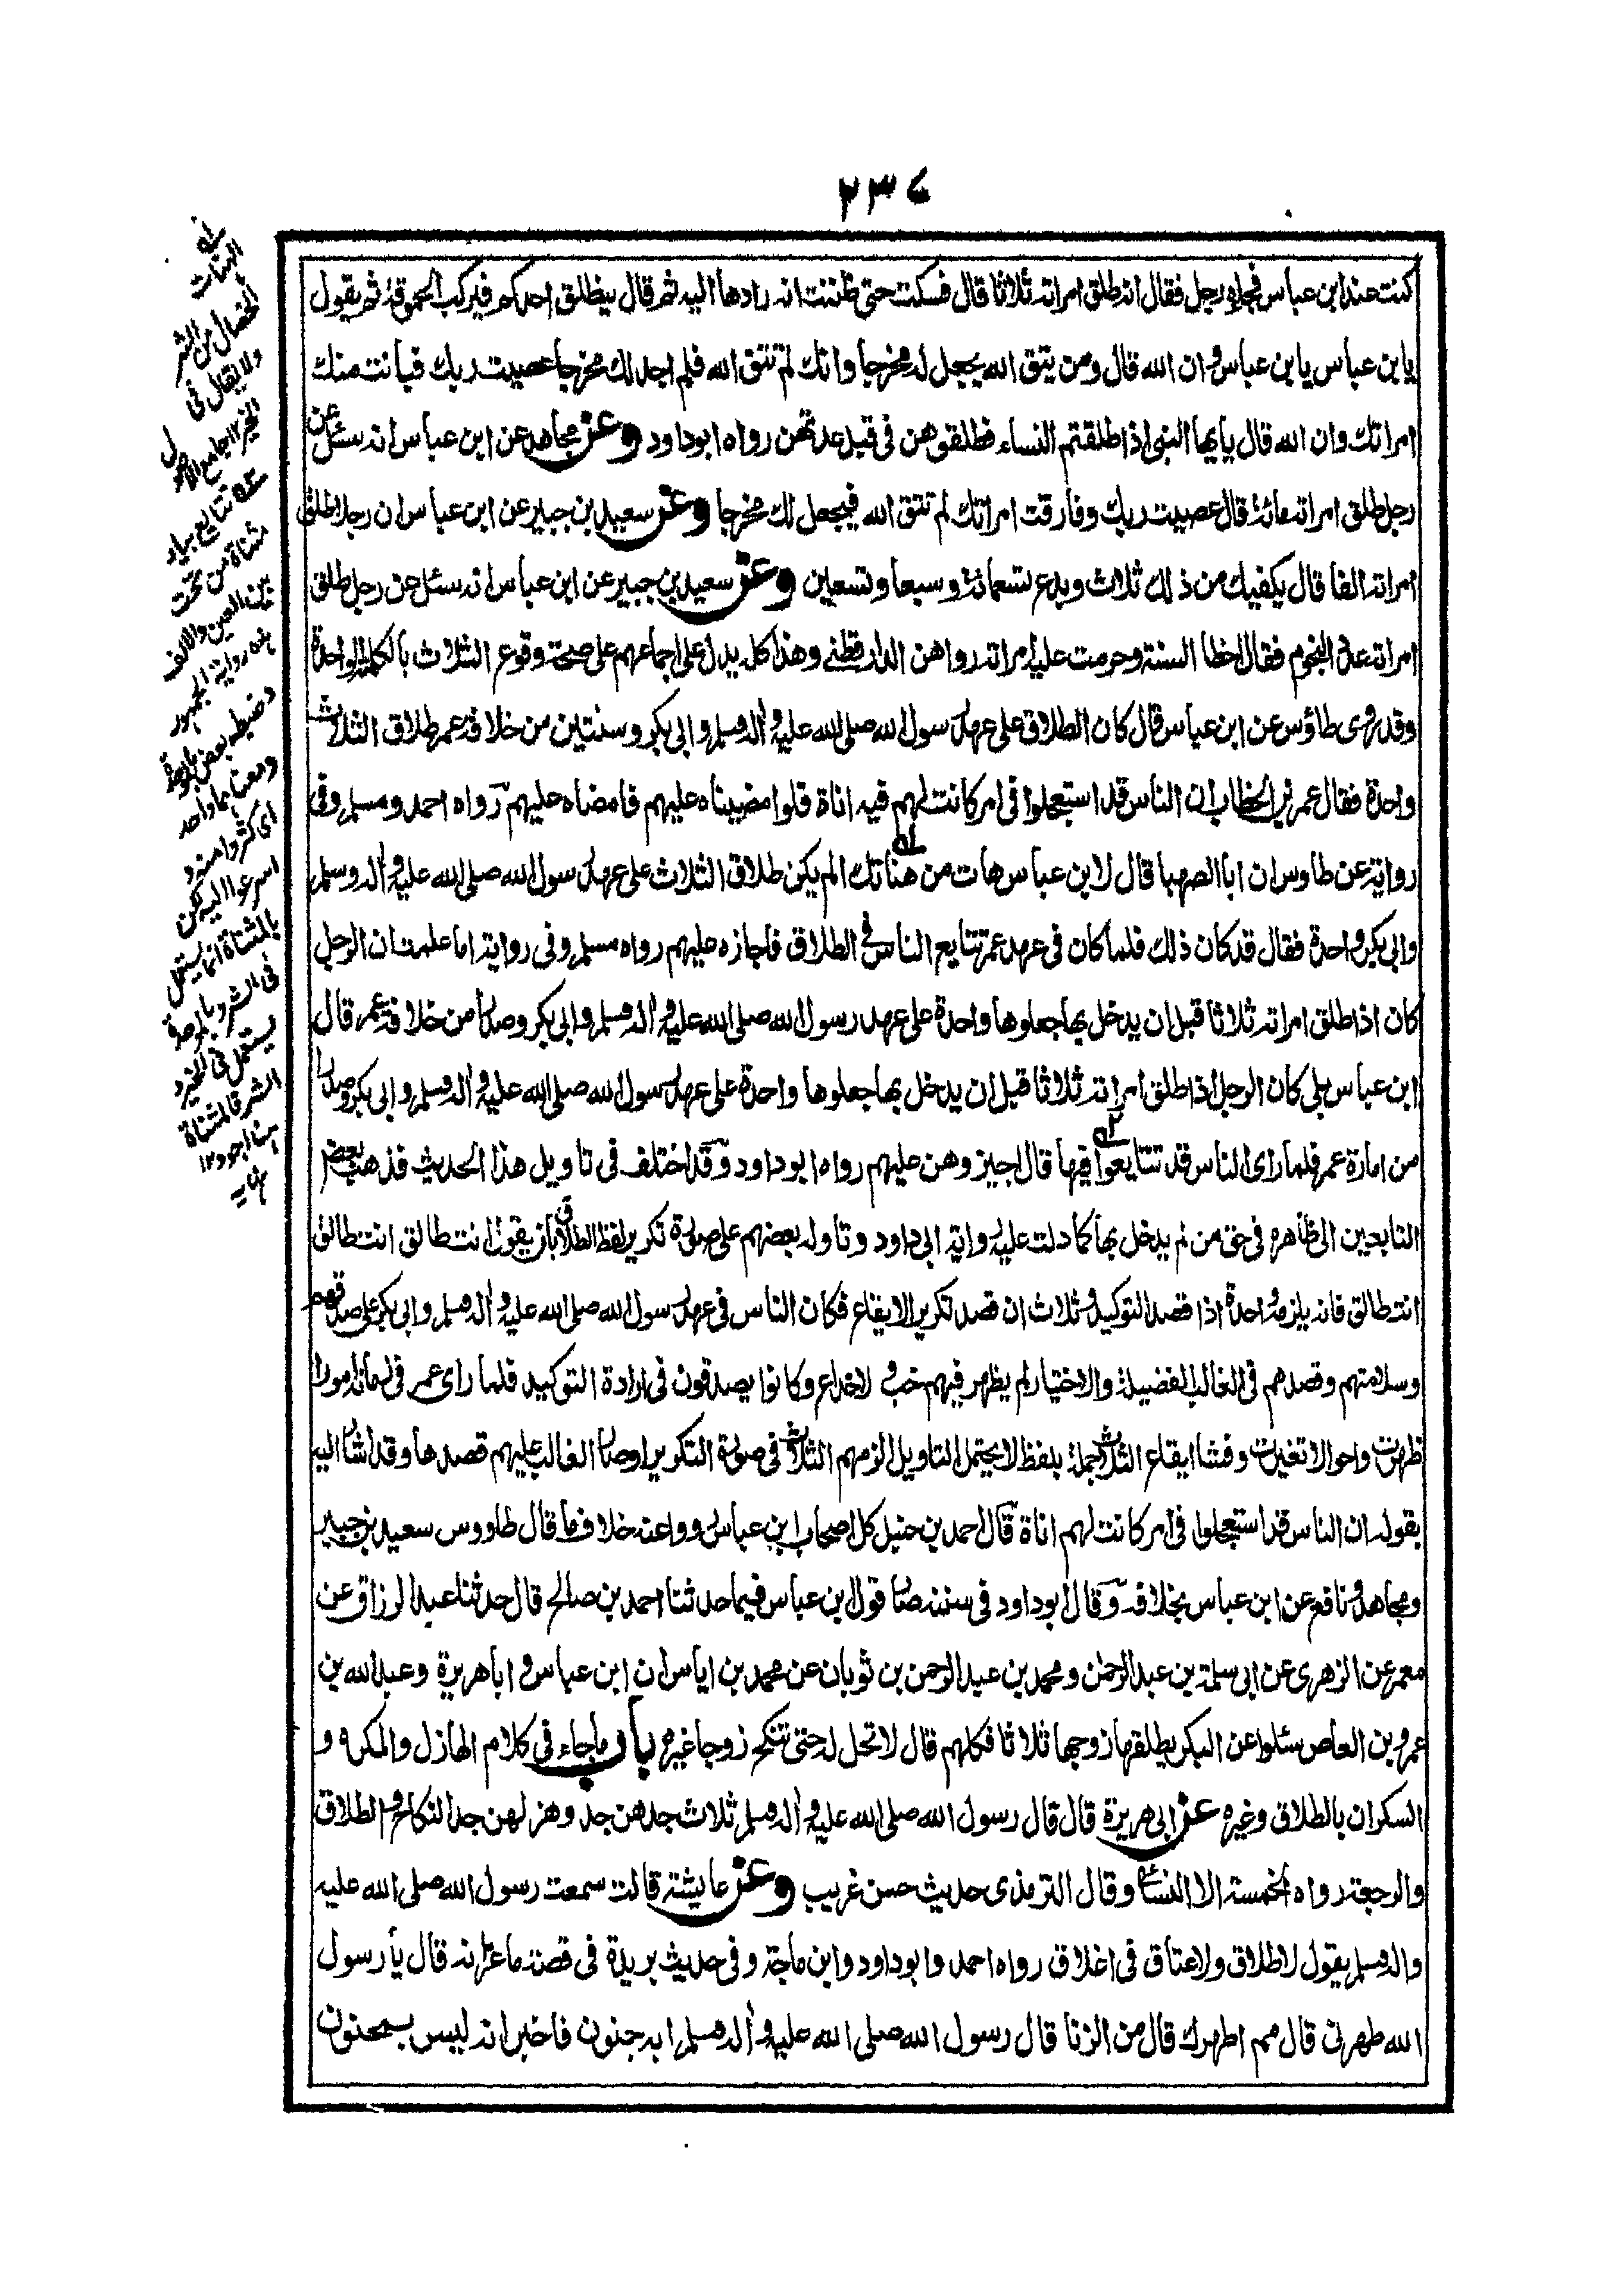 ٢٣٧
كنت عند ابن عباس فجاءه رجل فقال انه طلق امراته ثلاثا قال فسكت حتى ظننت انه رادها اليه ثم قال يطلق احدكم فيركب الحموقة ثم يقول
يا بن عباس يا بن عباس وان الله قال ومن يتق الله يجعل له مخرجا وانك لم تتق الله فلم اجد لك مخرجا عصيت ربك فبانت منك
امراتك وان الله قال يايها النبى اذا طلقتم النساء فطلقوهن فى قبل عدتهن رواه ابوداود وعن مجاهد عن ابن عباس انه سئل عن
رجل طلق امراته مائة قال عصيت ربك وفارقت امراتك لم تتق الله فيجعل لك مخرجا وعن سعيد بن جبير عن ابن عباس ان رجلا طلق
امراته الفا قال يكفيك من ذلك ثلاث ويدع تسعمائة وسبعا وتسعين وعن سعيد بن جبير عن ابن عباس انه سئل عن رجل طلق
امراته عدد النجوم فقال اخطا السنة وحرمت عليه امراته رواهن الدارقطنى وهذا كله يدل على اجماعهم على صحة وقوع الثلاث بالكلمة الواحدة
وقد روى طاؤس عن ابن عباس قال كان الطلاق على عهد رسول الله صلى الله عليه واله وسلم وابى بكر وسنتين من خلافة عمر طلاق الثلاث
واحدة فقال عمر بن الخطاب ان الناس قد استعجلوا فى امر كانت لهم فيه اناة فلو امضيناه عليهم فامضاه عليهم رواه احمد ومسلم وفى
رواية عن طاوس ان ابا الصهبا قال لابن عباس هات من هناتك الم يكن طلاق الثلاث على عهد رسول الله صلى الله عليه واله وسلم
وابى بكر واحدة فقال قد كان ذلك فلما كان فى عهد عمر تتايع الناس فى الطلاق فاجازه عليهم رواه مسلم وفى رواية اما علمت ان الرجل
كان اذا طلق امراته ثلاثا قبل ان يدخل بها جعلوها واحدة على عهد رسول الله صلى الله عليه واله وسلم وابى بكر وصدرا من خلافة عمر قال
ابن عباس بلى كان الرجل اذا طلق امراته ثلاثا قبل ان يدخل بها جعلوها واحدة على عهد رسول الله صلى الله عليه واله وسلم وابى بكر وصدرا
من امارة عمر فلما راى الناس قد تتايعوا فيها قال اجيزوهن عليهم رواه ابوداود وقد اختلف فى تاويل هذا الحديث فذهب بعض
التابعين الى ظاهره فى حق من لم يدخل بها كما دلت عليه رواية ابى داود وتاوله بعضهم على صورة تكرير لفظ الطلاق بان يقول انت طالق انت طالق
انت طالق فانه يلزمه واحدة اذا قصد التوكيد وثلاث ان قصد تكرير الايقاع فكان الناس فى عهد رسول الله صلى الله عليه واله وسلم وابى بكر على صدقهم
وسلامتهم وقصدهم فى الغالب الفضيلة والاختيار لم يظهر فيهم خب ولا خداع وكانوا يصدقون فى ارادة التوكيد فلما راى عمر فى زمانه امورا
ظهرت واحوالا تغيرت وفشا ايقاع الثلاث جملة بلفظ لا يحتمل التاويل الزمهم الثلاث فى صورة التكرير اذ صار الغالب عليهم قصدها وقد اشار اليه
بقوله ان الناس قد استعجلوا فى امر كانت لهم اناة قال احمد بن حنبل كل اصحاب ابن عباس رووا عنه خلاف ما قال طاووس سعيد بن جبير
ومجاهد ونافع عن ابن عباس بخلافه وقال ابوداود فى سننه صار قول ابن عباس فيما حدثنا احمد بن صالح قال حدثنا عبد الرزاق عن
معمر عن الزهرى عن ابى سلمة بن عبد الرحمن ومحمد بن عبد الرحمن بن ثوبان عن محمد بن اياس ان ابن عباس وابا هريرة وعبد الله بن
عمرو بن العاص سئلوا عن البكر يطلقها زوجها ثلاثا فكلهم قال لا تحل له حتى تنكح زوجا غيره باب ماجاء فى كلام الهازل والمكره و
السكران بالطلاق وغيره عن ابى هريرة قال قال رسول الله صلى الله عليه واله وسلم ثلاث جدهن جد وهزلهن جد النكاح والطلاق
والرجعة رواه الخمسة الا النسائى وقال الترمذى حديث حسن غريب وعن عايشة قالت سمعت رسول الله صلى الله عليه
واله وسلم يقول لا طلاق ولا عتاق فى اغلاق رواه احمد وابوداود وابن ماجة وفى حديث بريدة فى قصة ماعز انه قال يا رسول
الله طهرنى قال مم اطهرك قال من الزنا قال رسول الله صلى الله عليه واله وسلم ابه جنون فاخبر انه ليس بمجنون
له
الهنات
الخصال من الشر
ولا يقال فى
الخير ١٢ جامع الاصول
تتايع بياء
مثناة من تحت
بين العين والالف
هذه رواية الجمهور
وضبطه بعض بالموحدة
ومعناهما واحد
اى كثروا منه و
اسرعوا اليه لكن
بالمثناة انما يستعمل
فى الشر وبالموحدة
يستعمل فى الخير و
الشر فالمثناة
هنا اجود ١٢